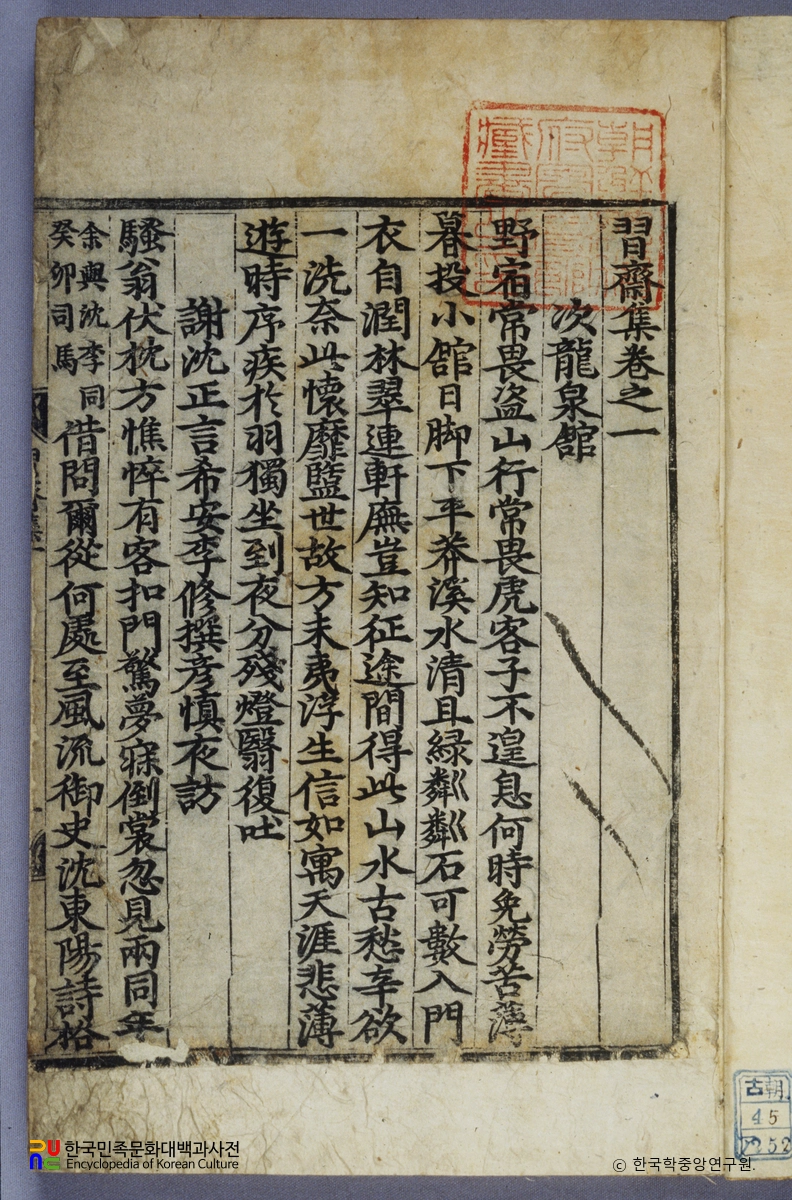 朝鮮總督
府圖書館
藏書之印
習齋集卷之一
次龍泉舘
野宿常畏盜山行常畏虎客子不遑息何時免勞苦薄
暮投小舘日脚下平莽溪水清且緑粼粼石可數入門
衣自潤林翠連軒廡豈知征途間得此山水古愁辛欲
一洗奈此懷靡盬世故方未夷浮生信如寓天涯悲薄
遊時序疾於羽獨坐到夜分殘燈翳復吐
謝沈正言希安李修撰彦愼夜訪
騷翁伏枕方憔悴有客扣門驚夢寐倒裳忽見兩同年
余與沈李同
癸卯司馬
借問爾從何處至風流御史沈東陽詩格
古朝
45
한국민족문화대백과사전
Encyclopedia of Korean Culture
© 한국학중앙연구원.